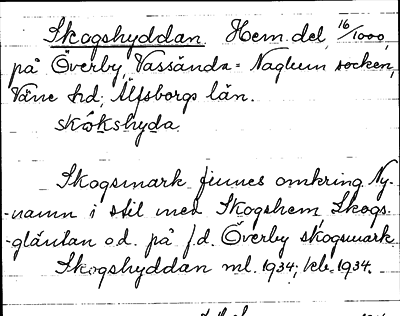 Skogshyddan. Hem.del, 16/1000,
på Överby, Vassända-Naglum socken,
Väne hd, Älfsborgs län.
skɷ̀kshyda.
Skogsmark finnes omkring. Ny-
-namn i stil med Skogshem, Skogs-
-gläntan o.d. på f.d. Överby skogsmark.
Skogshyddan ml. 1934; kb. 1934.